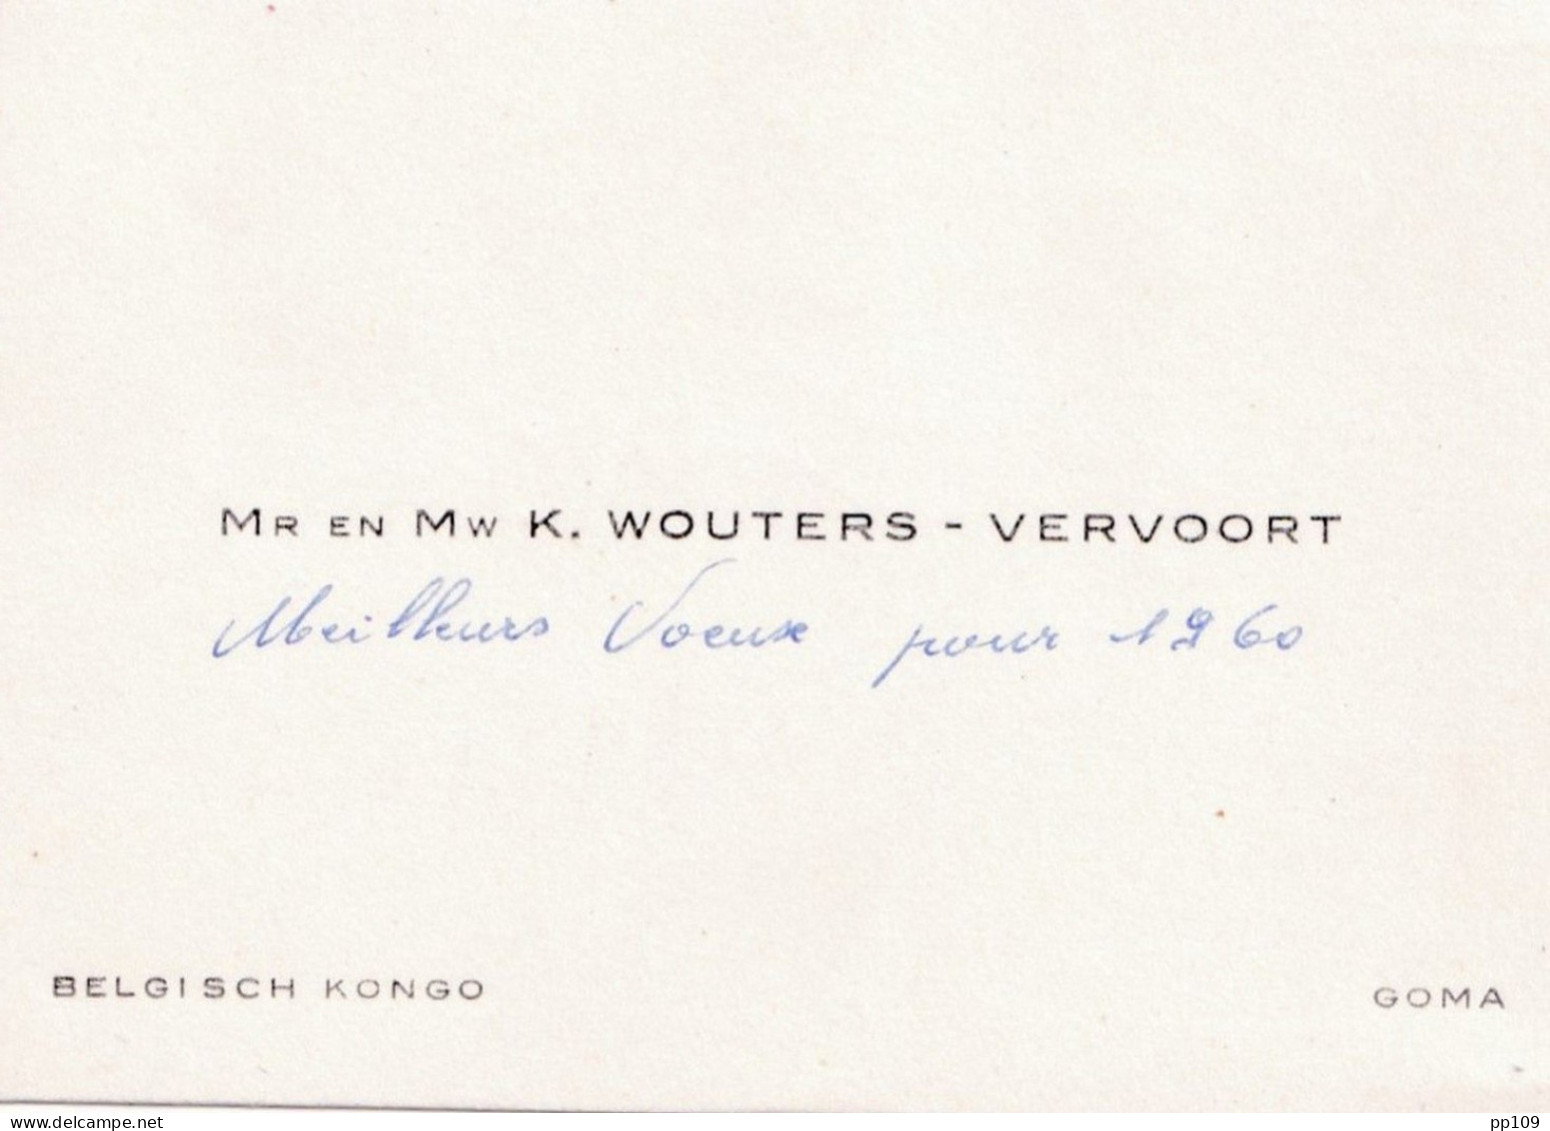 MR EN MW K. WOUTERS - VERVOORT
Meilleurs Voeux pour 1960
BELGISCH KONGO
GOMA
www.delcampe.net
pp109